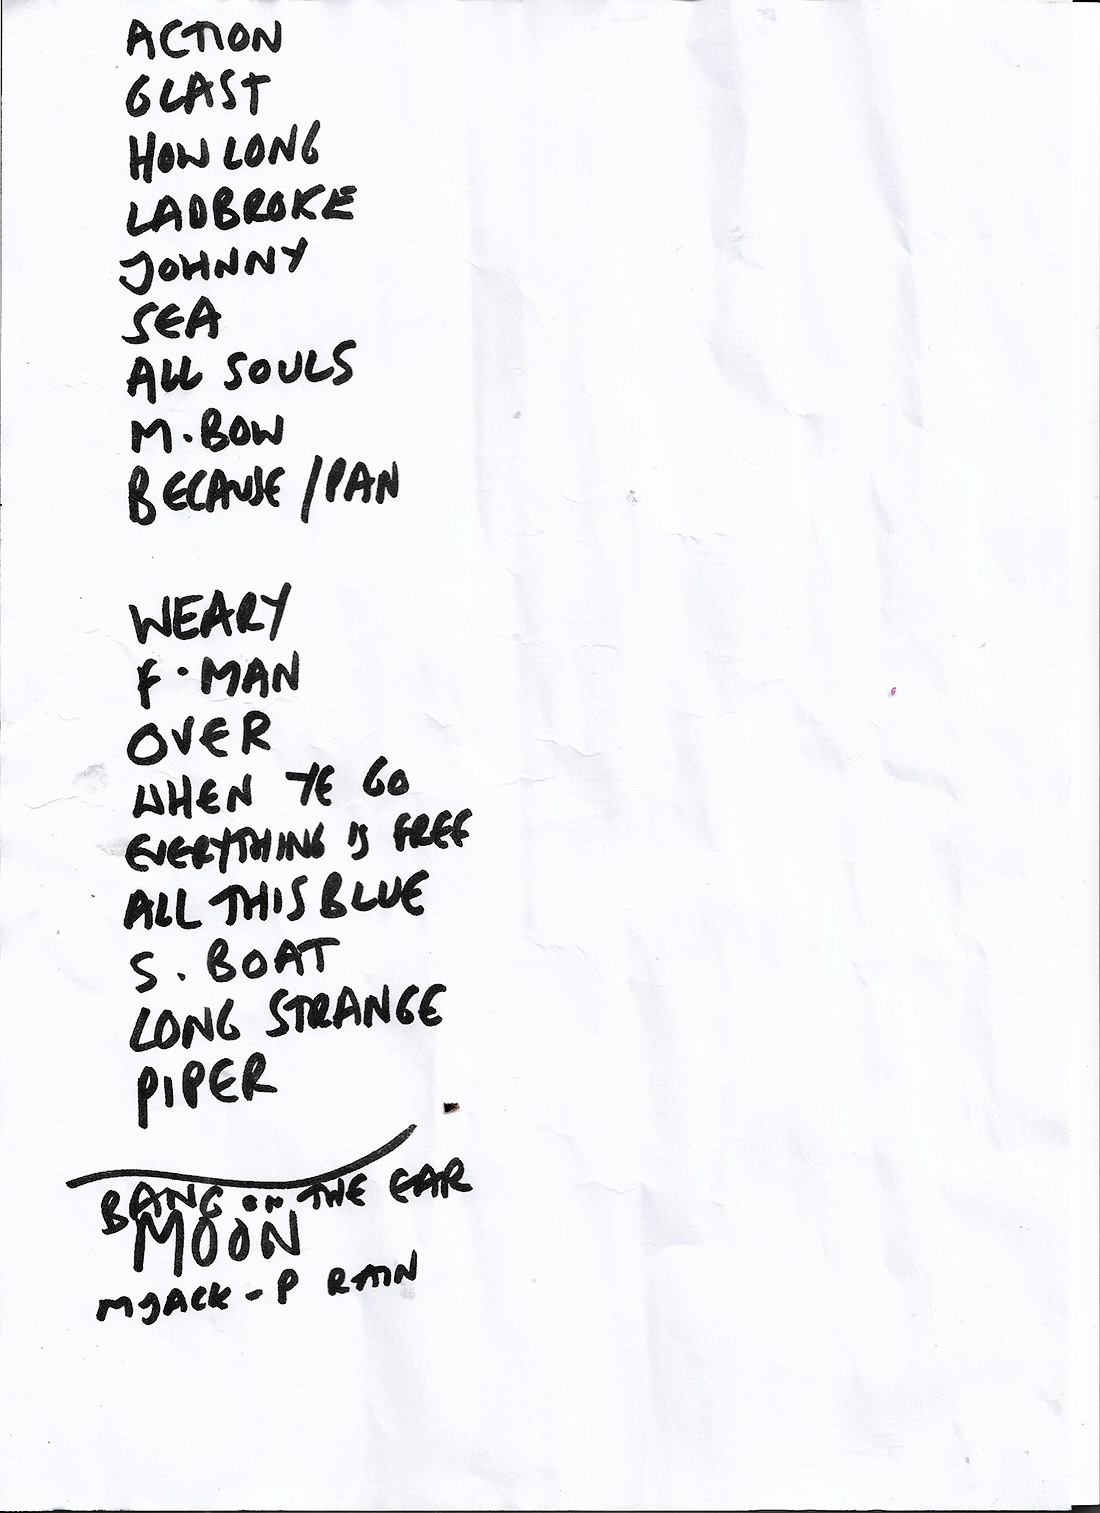 ACTION
GLAST
HOW LONG
LADBROKE
JOHNNY
SEA
ALL SOULS
M. BOW
BECAUSE / PAN
WEARY
F. MAN
OVER
WHEN YE GO
EVERYTHING IS FREE
ALL THIS BLUE
S. BOAT
LONG STRANGE
PIPER
BANG ON THE EAR
MOON
MJACK - P RAIN